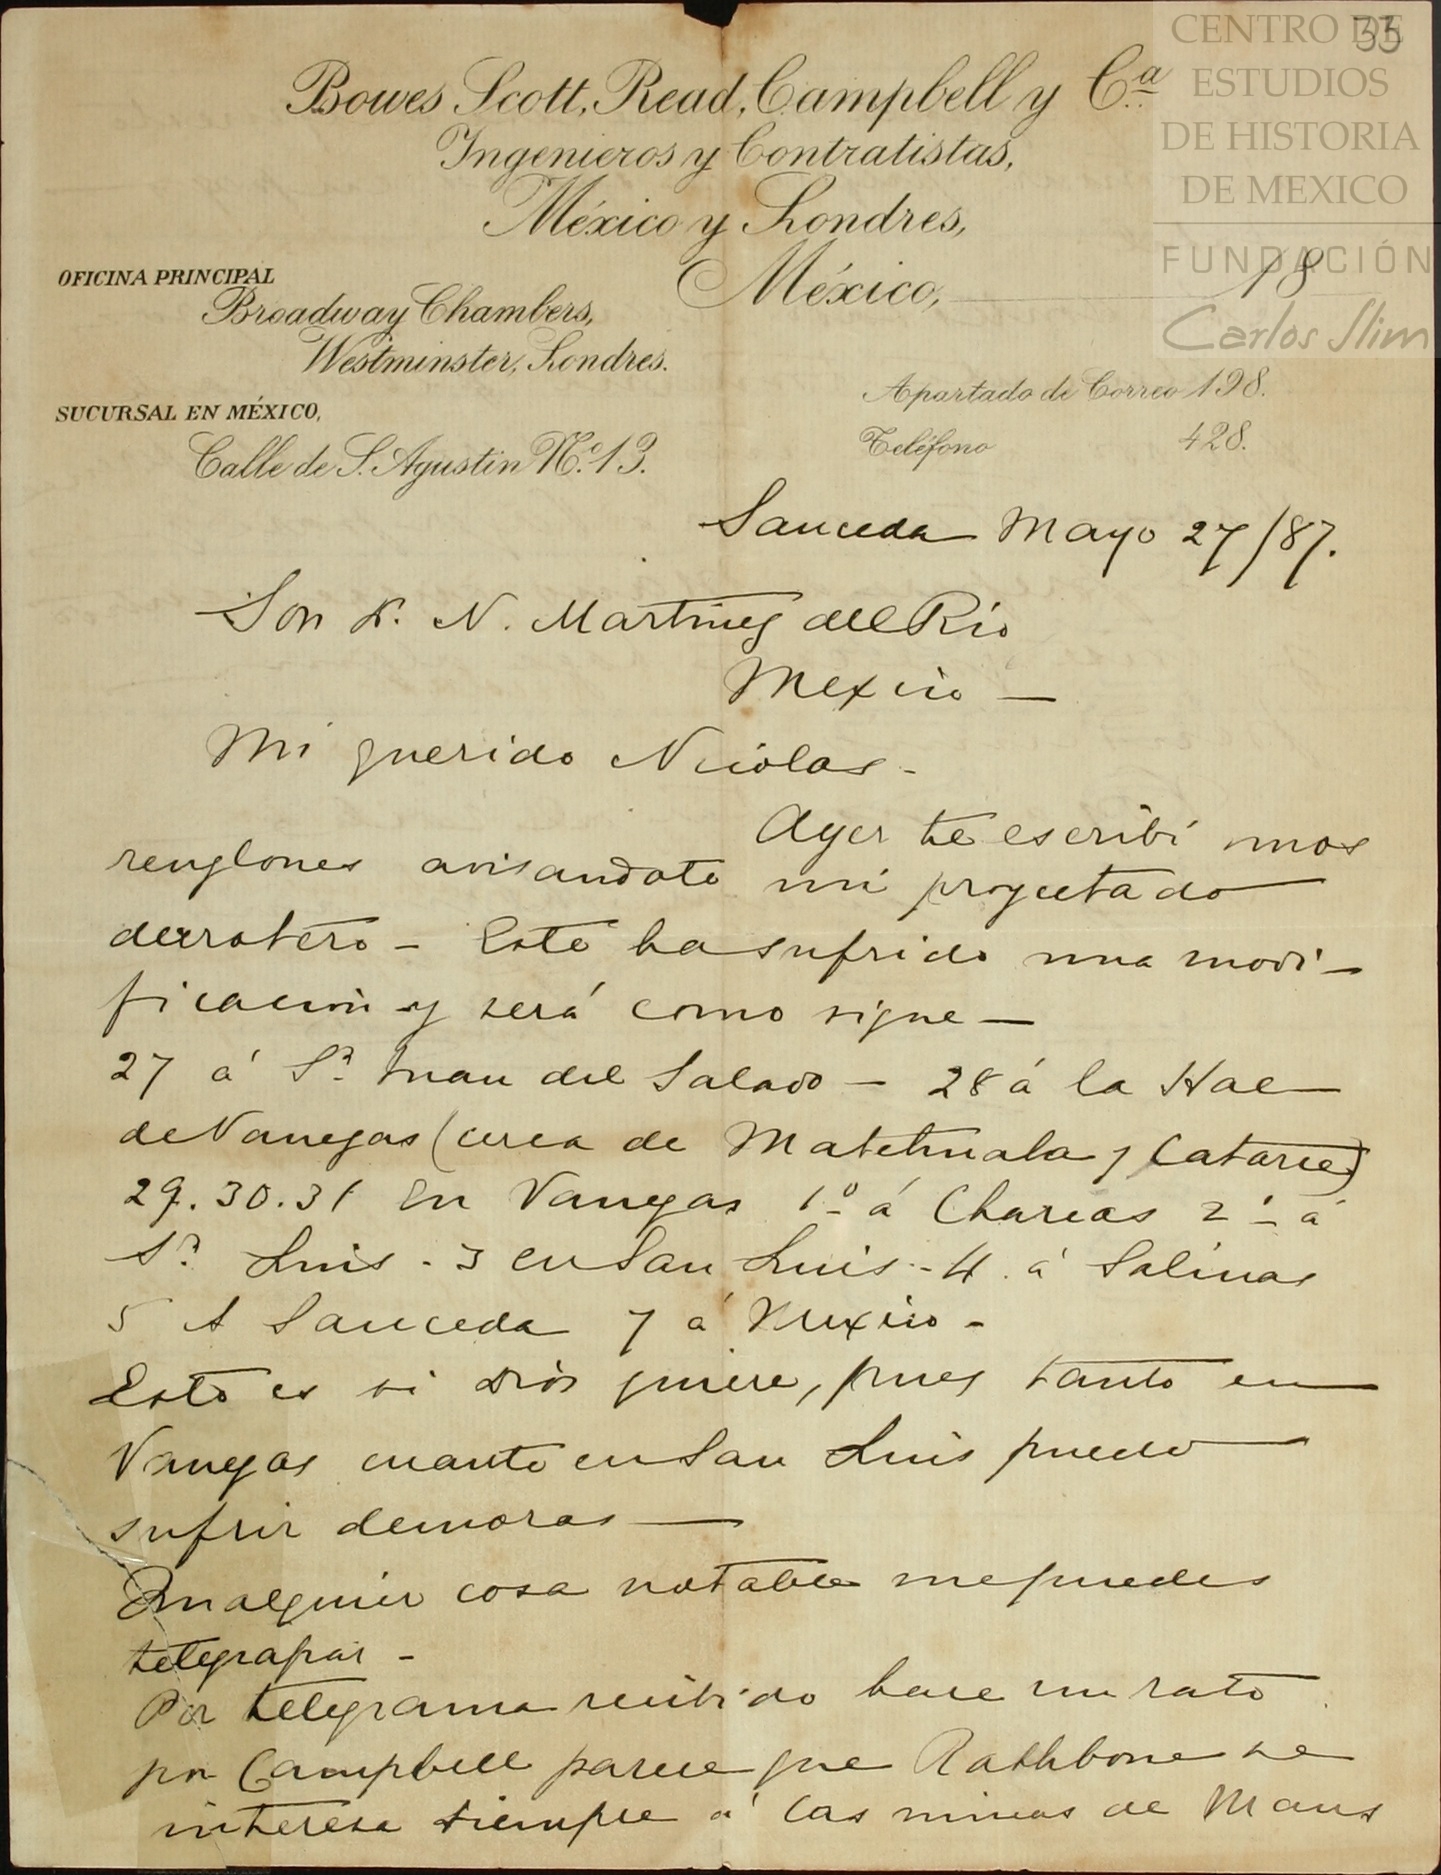 33
CENTRO DE
ESTUDIOS
DE HISTORIA
DE MEXICO
FUNDACIÓN
Carlos Slim
Bowes Scott, Read, Campbell y Cª
Ingenieros y Contratistas,
México y Londres,
México, 18
OFICINA PRINCIPAL
Broadway Chambers,
Westminster, Londres.
SUCURSAL EN MÉXICO,
Calle de S. Agustin No. 13.
Apartado de Correo 198.
Teléfono 428.
Sauceda Mayo 27/87.
Sor D. N. Martinez del Rio
Mexico —
Mi querido Nicolas -
Ayer te escribi unos
renglones avisandote mi proyectado
derrotero - Este ha sufrido una modi-
ficacion y será como sigue —
27 á Sn Juan del Salado — 28 á la Hac—
de Vanegas (cerca de Matehuala y Catorce)
29. 30. 31 en Vanegas 1º á Charcas 2 - á
Sn Luis - 3 en San Luis - 4 á Salinas
5 A Sauceda 7 á Mexico -
Esto es si Dios quiere, pues tanto en
Vanegas cuanto en San Luis puedo
sufrir demoras —
Cualquier cosa notable me puedes
telegrafiar -
Por telegrama recibido hace un rato
por Campbell parece que Rathbone se
interesa siempre á las minas de Maus